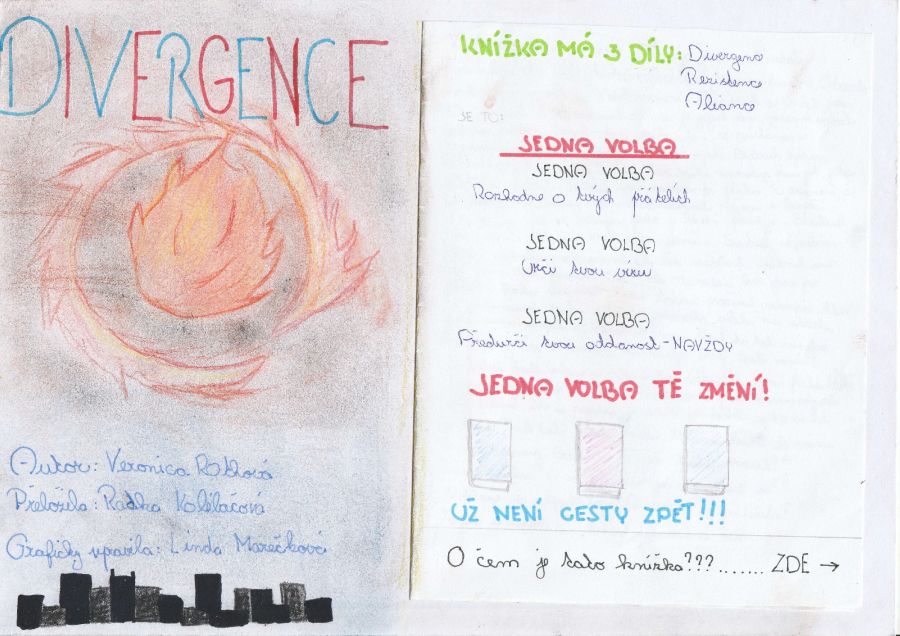 DIVERGENCE
Autor: Veronica Rothová
Přeložila: Radka
Graficky upravila: Linda Marečková
KNÍŽKA MÁ 3 DÍLY: Divergence
Rezistence
Aliance
JE TO:
JEDNA VOLBA
JEDNA VOLBA
Rozhodne o tvých přátelích
JEDNA VOLBA
Určí tvou víru
JEDNA VOLBA
Předurčí tvou oddanost-NAVŽDY
JEDNA VOLBA TĚ ZMĚNÍ!
UŽ NENÍ CESTY ZPĚT!!!
O čem je tato knížka???....... ZDE →